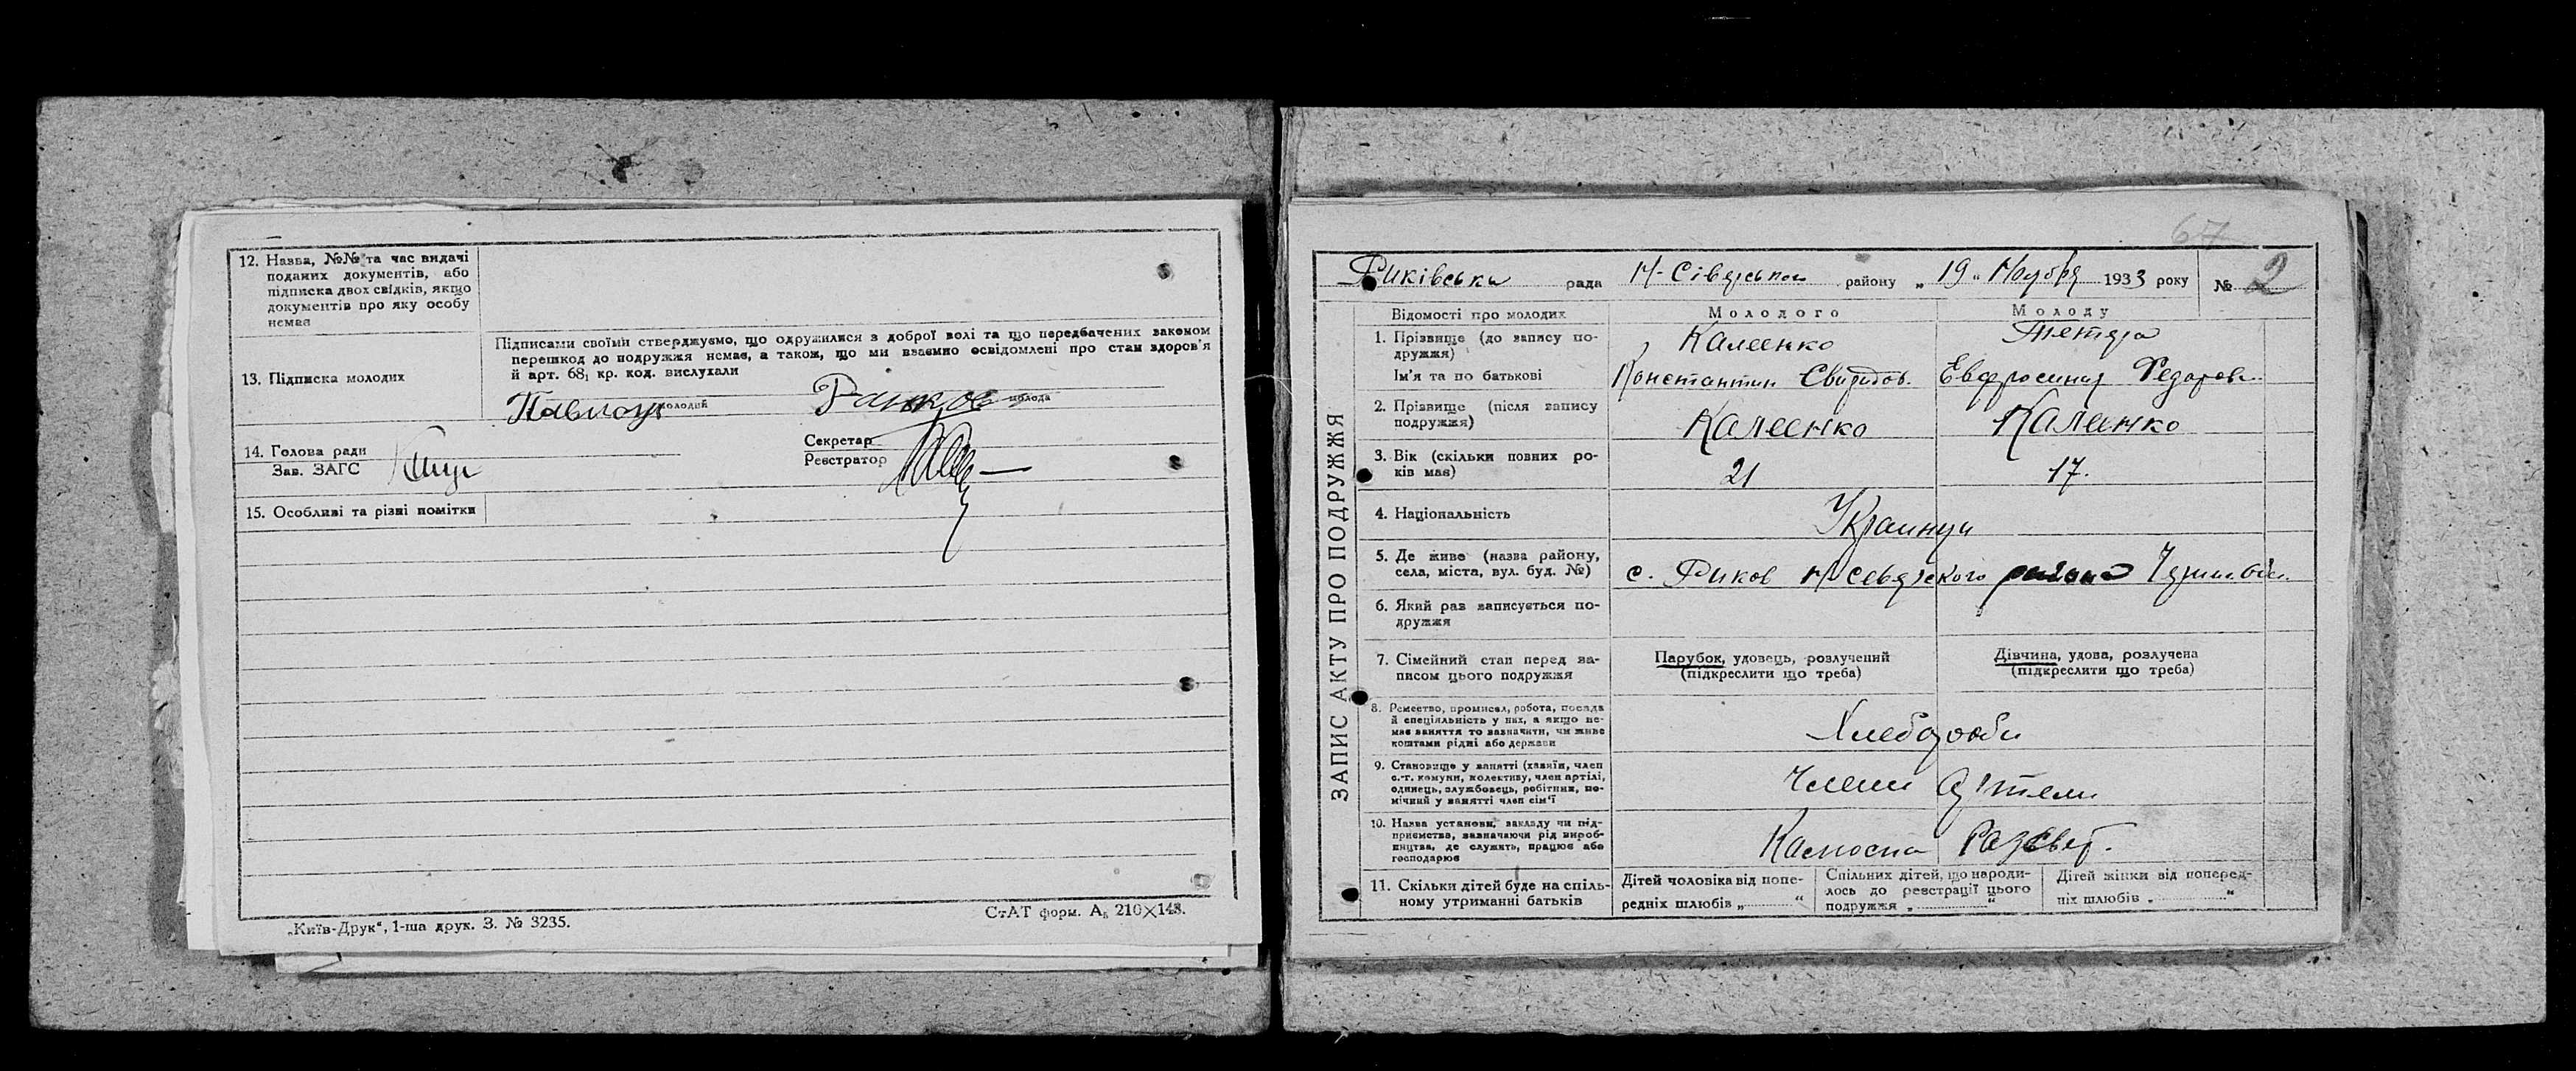 12. Назва, №№ та час видачі
поданих документів, або
підписка двох свідків, якщо
документів про яку особу
немає
13. Підписка молодих
Підписами своїми стверджуємо, що одружилися з доброї волі та що передбачених законом
перешкод до подружжя немає, а також, що ми взаємно освідомлені про стан здоров'я
й арт. 68₁ кр. код. вислухали
молодий
молода
14. Голова ради
Зав. ЗАГС
Секретар
Реєстратор
15. Особливі та різні помітки
„Київ-Друк“, 1-ша друк. З. № 3235.
СтАТ форм. А₅ 210×148.
67
Риківська рада Н-Сіверська району „ 19 „ Ноября 1933 року № 2
ЗАПИС АКТУ ПРО ПОДРУЖЖЯ
Відомості про молодих
Молодого
Молоду
1. Прізвище (до запису подружжя)
Калеенко
Ім'я та по батькові
Константин Свиридов.
Евфросиния Федоров.
2. Прізвище (після запису
подружжя)
Калеенко
Калеенко
3. Вік (скільки повних ро-
ків має)
21
17.
4. Національність
Украинци
5. Де живе (назва району,
села, міста, вул. буд. №)
с. Риков Н Севярского района
6. Який раз записується по-
дружжя
7. Сімейний стан перед за-
писом цього подружжя
Парубок, удовець, розлучений
(підкреслити що треба)
Дівчина, удова, розлучена
(підкреслити що треба)
8. Ремество, промисел, робота, посада
й спеціяльність у них, а якщо не-
має заняття то зазначити, чи живе
коштами рідні або держави
Хлебороби
9. Становище у занятті (хазяїн, член
с.-г. комуни, колективу, член артілі,
одинець, службовець, робітник, по-
мічний у занятті член сім'ї
Члени Артели
10. Назва установи, закладу чи під-
приємства, зазначаючи рід вироб-
ництва, де служить, працює або
господарює
Разсвет.
11. Скільки дітей буде на спіль-
ному утриманні батьків
Дітей чоловіка від попе-
редніх шлюбів „ “
Спільних дітей, що народи-
лось до реєстрації цього
подружжя „ “
Дітей жінки від поперед-
ніх шлюбів „ “